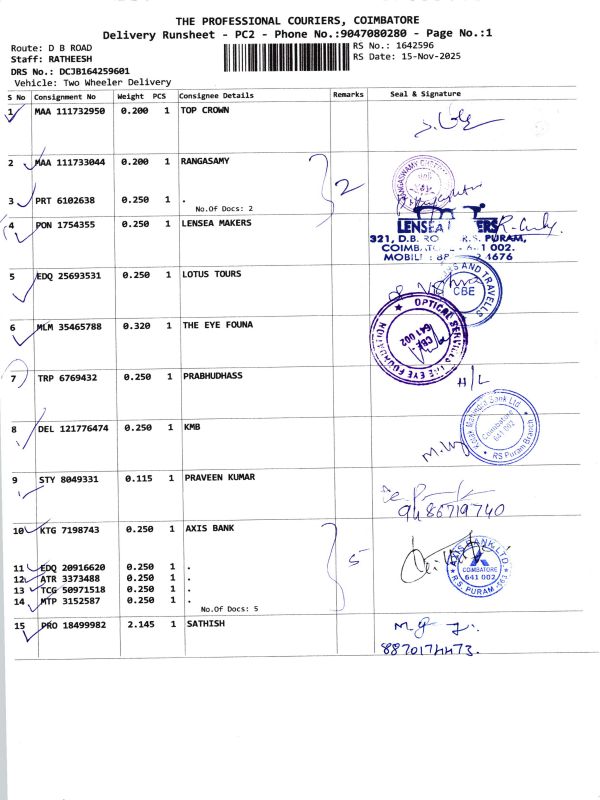 THE PROFESSIONAL COURIERS, COIMBATORE
Delivery Runsheet - PC2 - Phone No.:9047080280 - Page No.:1
Route: D B ROAD
RS No.: 1642596
Staff: RATHEESH
RS Date: 15-Nov-2025
DRS No.: DCJB164259601
Vehicle: Two Wheeler Delivery
S No Consignment No Weight PCS Consignee Details Remarks Seal & Signature
1 MAA 111732950 0.200 1 TOP CROWN
2 MAA 111733044 0.200 1 RANGASAMY
2
3 PRT 6102638 0.250 1 .
No.Of Docs: 2
4 PON 1754355 0.250 1 LENSEA MAKERS
LENSEA
321, D.B. RO R.S. PURAM,
COIMB 641 002.
4676
5 EDQ 25693531 0.250 1 LOTUS TOURS
RS AND TRAVELLS
CBE
6 MLM 35465788 0.320 1 THE EYE FOUNA
OPTICAL SERVICES THE EYE FOUNDATION
CBE
641 002
7 TRP 6769432 0.250 1 PRABHUDHASS
H/L
8 DEL 121776474 0.250 1 KMB
Kotak Mahindra Bank Ltd
Coimbatore
641 002
RS Puram Branch
9 STY 8049331 0.115 1 PRAVEEN KUMAR
9486719740
10 KTG 7198743 0.250 1 AXIS BANK
5
AXIS BANK LTD.
COIMBATORE
641 002
R.S. PURAM
11 EDQ 20916620 0.250 1 .
12 ATR 3373488 0.250 1 .
13 TCG 50971518 0.250 1 .
14 MTP 3152587 0.250 1 .
No.Of Docs: 5
15 PRO 18499982 2.145 1 SATHISH
8870174473.